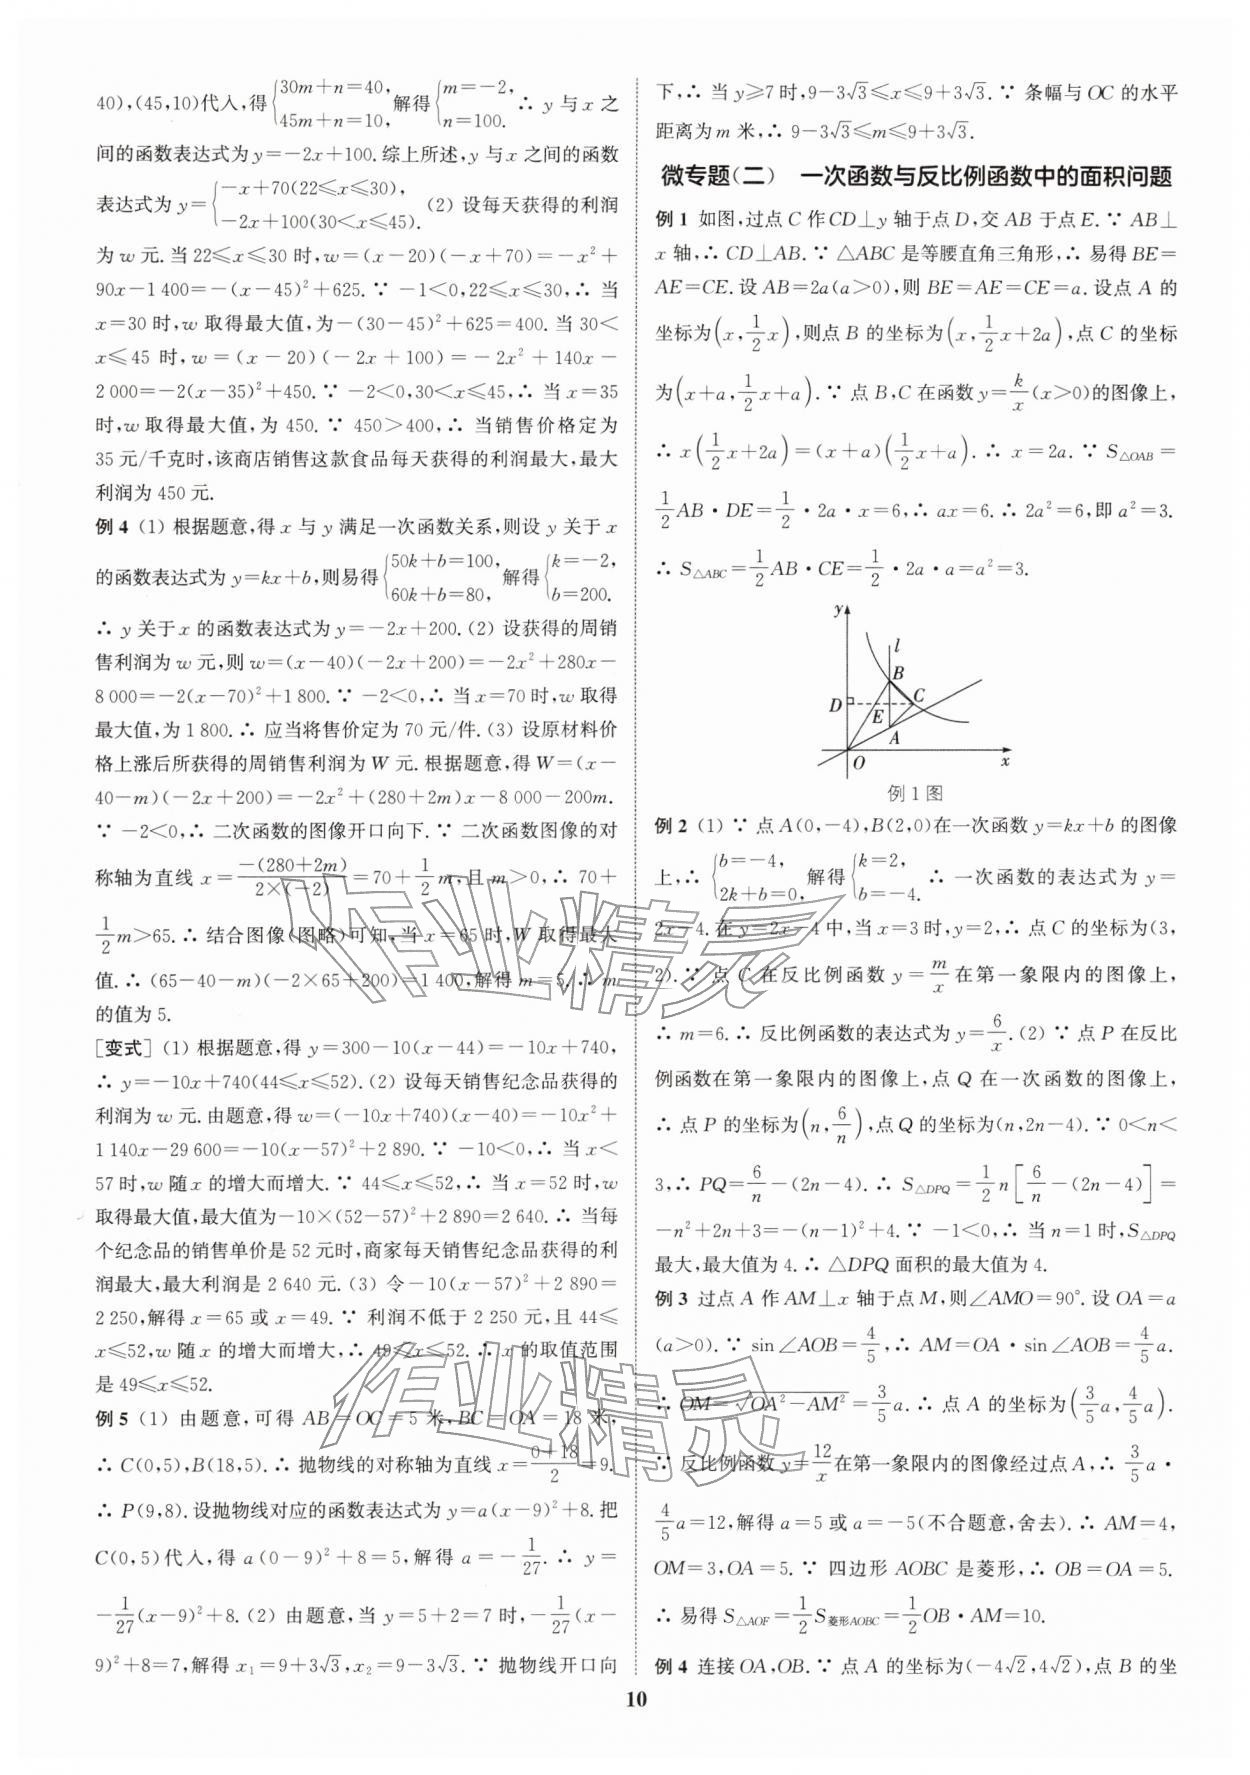 40),(45,10)代入,得{30m+n=40, 45m+n=10, 解得{m=-2, n=100. ∴ y 与 x 之
间的函数表达式为 y=-2x+100.综上所述,y 与 x 之间的函数
表达式为 y={-x+70(22≤x≤30), -2x+100(30<x≤45). (2) 设每天获得的利润
为 w 元.当 22≤x≤30 时,w=(x-20)(-x+70)=-x²+
90x-1 400=-(x-45)²+625.∵ -1<0,22≤x≤30,∴ 当
x=30 时,w 取得最大值,为-(30-45)²+625=400.当 30<
x≤45 时,w=(x-20)(-2x+100)=-2x²+140x-
2 000=-2(x-35)²+450.∵ -2<0,30<x≤45,∴ 当 x=35
时,w 取得最大值,为 450.∵ 450>400,∴ 当销售价格定为
35 元/千克时,该商店销售这款食品每天获得的利润最大,最大
利润为 450 元.
例 4 (1) 根据题意,得 x 与 y 满足一次函数关系,则设 y 关于 x
的函数表达式为 y=kx+b,则易得{50k+b=100, 60k+b=80, 解得{k=-2, b=200.
∴ y 关于 x 的函数表达式为 y=-2x+200.(2) 设获得的周销
售利润为 w 元,则 w=(x-40)(-2x+200)=-2x²+280x-
8 000=-2(x-70)²+1 800.∵ -2<0,∴ 当 x=70 时,w 取得
最大值,为 1 800.∴ 应当将售价定为 70 元/件.(3) 设原材料价
格上涨后所获得的周销售利润为 W 元.根据题意,得 W=(x-
40-m)(-2x+200)=-2x²+(280+2m)x-8 000-200m.
∵ -2<0,∴ 二次函数的图像开口向下.∵ 二次函数图像的对
称轴为直线 x=-(280+2m)/2×(-2)=70+1/2m,且 m>0,∴ 70+
1/2m>65.∴ 结合图像(图略)可知,当 x=65 时,W 取得最大
值.∴ (65-40-m)(-2×65+200)=1 400,解得 m=5.∴ m
的值为 5.
[变式] (1) 根据题意,得 y=300-10(x-44)=-10x+740,
∴ y=-10x+740(44≤x≤52).(2) 设每天销售纪念品获得的
利润为 w 元.由题意,得 w=(-10x+740)(x-40)=-10x²+
1 140x-29 600=-10(x-57)²+2 890.∵ -10<0,∴ 当 x<
57 时,w 随 x 的增大而增大.∵ 44≤x≤52,∴ 当 x=52 时,w
取得最大值,最大值为-10×(52-57)²+2 890=2 640.∴ 当每
个纪念品的销售单价是 52 元时,商家每天销售纪念品获得的利
润最大,最大利润是 2 640 元.(3) 令-10(x-57)²+2 890=
2 250,解得 x=65 或 x=49.∵ 利润不低于 2 250 元,且 44≤
x≤52,w 随 x 的增大而增大,∴ 49≤x≤52.∴ x 的取值范围
是 49≤x≤52.
例 5 (1) 由题意,可得 AB=OC=5 米,BC=OA=18 米,
∴ C(0,5),B(18,5).∴ 抛物线的对称轴为直线 x=0+18/2=9.
∴ P(9,8).设抛物线对应的函数表达式为 y=a(x-9)²+8.把
C(0,5)代入,得 a(0-9)²+8=5,解得 a=-1/27.∴ y=
-1/27(x-9)²+8.(2) 由题意,当 y=5+2=7 时,-1/27(x-
9)²+8=7,解得 x₁=9+3√3,x₂=9-3√3.∵ 抛物线开口向
下,∴ 当 y≥7 时,9-3√3≤x≤9+3√3.∵ 条幅与 OC 的水平
距离为 m 米,∴ 9-3√3≤m≤9+3√3.
微专题(二) 一次函数与反比例函数中的面积问题
例 1 如图,过点 C 作 CD⊥y 轴于点 D,交 AB 于点 E.∵ AB⊥
x 轴,∴ CD⊥AB.∵ △ABC 是等腰直角三角形,∴ 易得 BE=
AE=CE.设 AB=2a(a>0),则 BE=AE=CE=a.设点 A 的
坐标为(x,1/2x),则点 B 的坐标为(x,1/2x+2a),点 C 的坐标
为(x+a,1/2x+a).∵ 点 B,C 在函数 y=k/x(x>0)的图像上,
∴ x(1/2x+2a)=(x+a)(1/2x+a).∴ x=2a.∵ S△OAB=
1/2AB·DE=1/2·2a·x=6,∴ ax=6.∴ 2a²=6,即 a²=3.
∴ S△ABC=1/2AB·CE=1/2·2a·a=a²=3.
y
l
B
D
C
E
A
O
x
例 1 图
例 2 (1) ∵ 点 A(0,-4),B(2,0)在一次函数 y=kx+b 的图像
上,∴ {b=-4, 2k+b=0, 解得{k=2, b=-4. ∴ 一次函数的表达式为 y=
2x-4.在 y=2x-4 中,当 x=3 时,y=2,∴ 点 C 的坐标为(3,
2).∵ 点 C 在反比例函数 y=m/x 在第一象限内的图像上,
∴ m=6.∴ 反比例函数的表达式为 y=6/x.(2) ∵ 点 P 在反比
例函数在第一象限内的图像上,点 Q 在一次函数的图像上,
∴ 点 P 的坐标为(n,6/n),点 Q 的坐标为(n,2n-4).∵ 0<n<
3,∴ PQ=6/n-(2n-4).∴ S△DPQ=1/2n[6/n-(2n-4)]=
-n²+2n+3=-(n-1)²+4.∵ -1<0,∴ 当 n=1 时,S△DPQ
最大,最大值为 4.∴ △DPQ 面积的最大值为 4.
例 3 过点 A 作 AM⊥x 轴于点 M,则∠AMO=90°.设 OA=a
(a>0).∵ sin∠AOB=4/5,∴ AM=OA·sin∠AOB=4/5a.
∴ OM=√(OA²-AM²)=3/5a.∴ 点 A 的坐标为(3/5a,4/5a).
∵ 反比例函数 y=12/x 在第一象限内的图像经过点 A,∴ 3/5a·
4/5a=12,解得 a=5 或 a=-5(不合题意,舍去).∴ AM=4,
OM=3,OA=5.∵ 四边形 AOBC 是菱形,∴ OB=OA=5.
∴ 易得 S△AOF=1/2S菱形AOBC=1/2OB·AM=10.
例 4 连接 OA,OB.∵ 点 A 的坐标为(-4√2,4√2),点 B 的坐
10
作业精灵
作业精灵